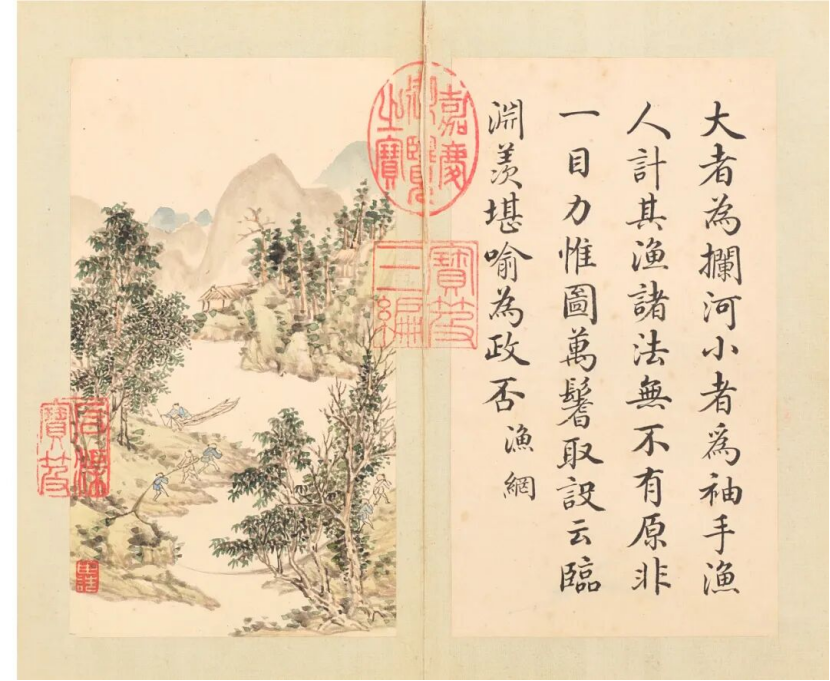 大者為攔河小者爲袖手漁
人計其漁諸法無不有原非
一目力惟圖萬鬐取設云臨
淵羨堪喻為政否 漁網
嘉慶御覽之寶
寶笈三編
石渠寶笈